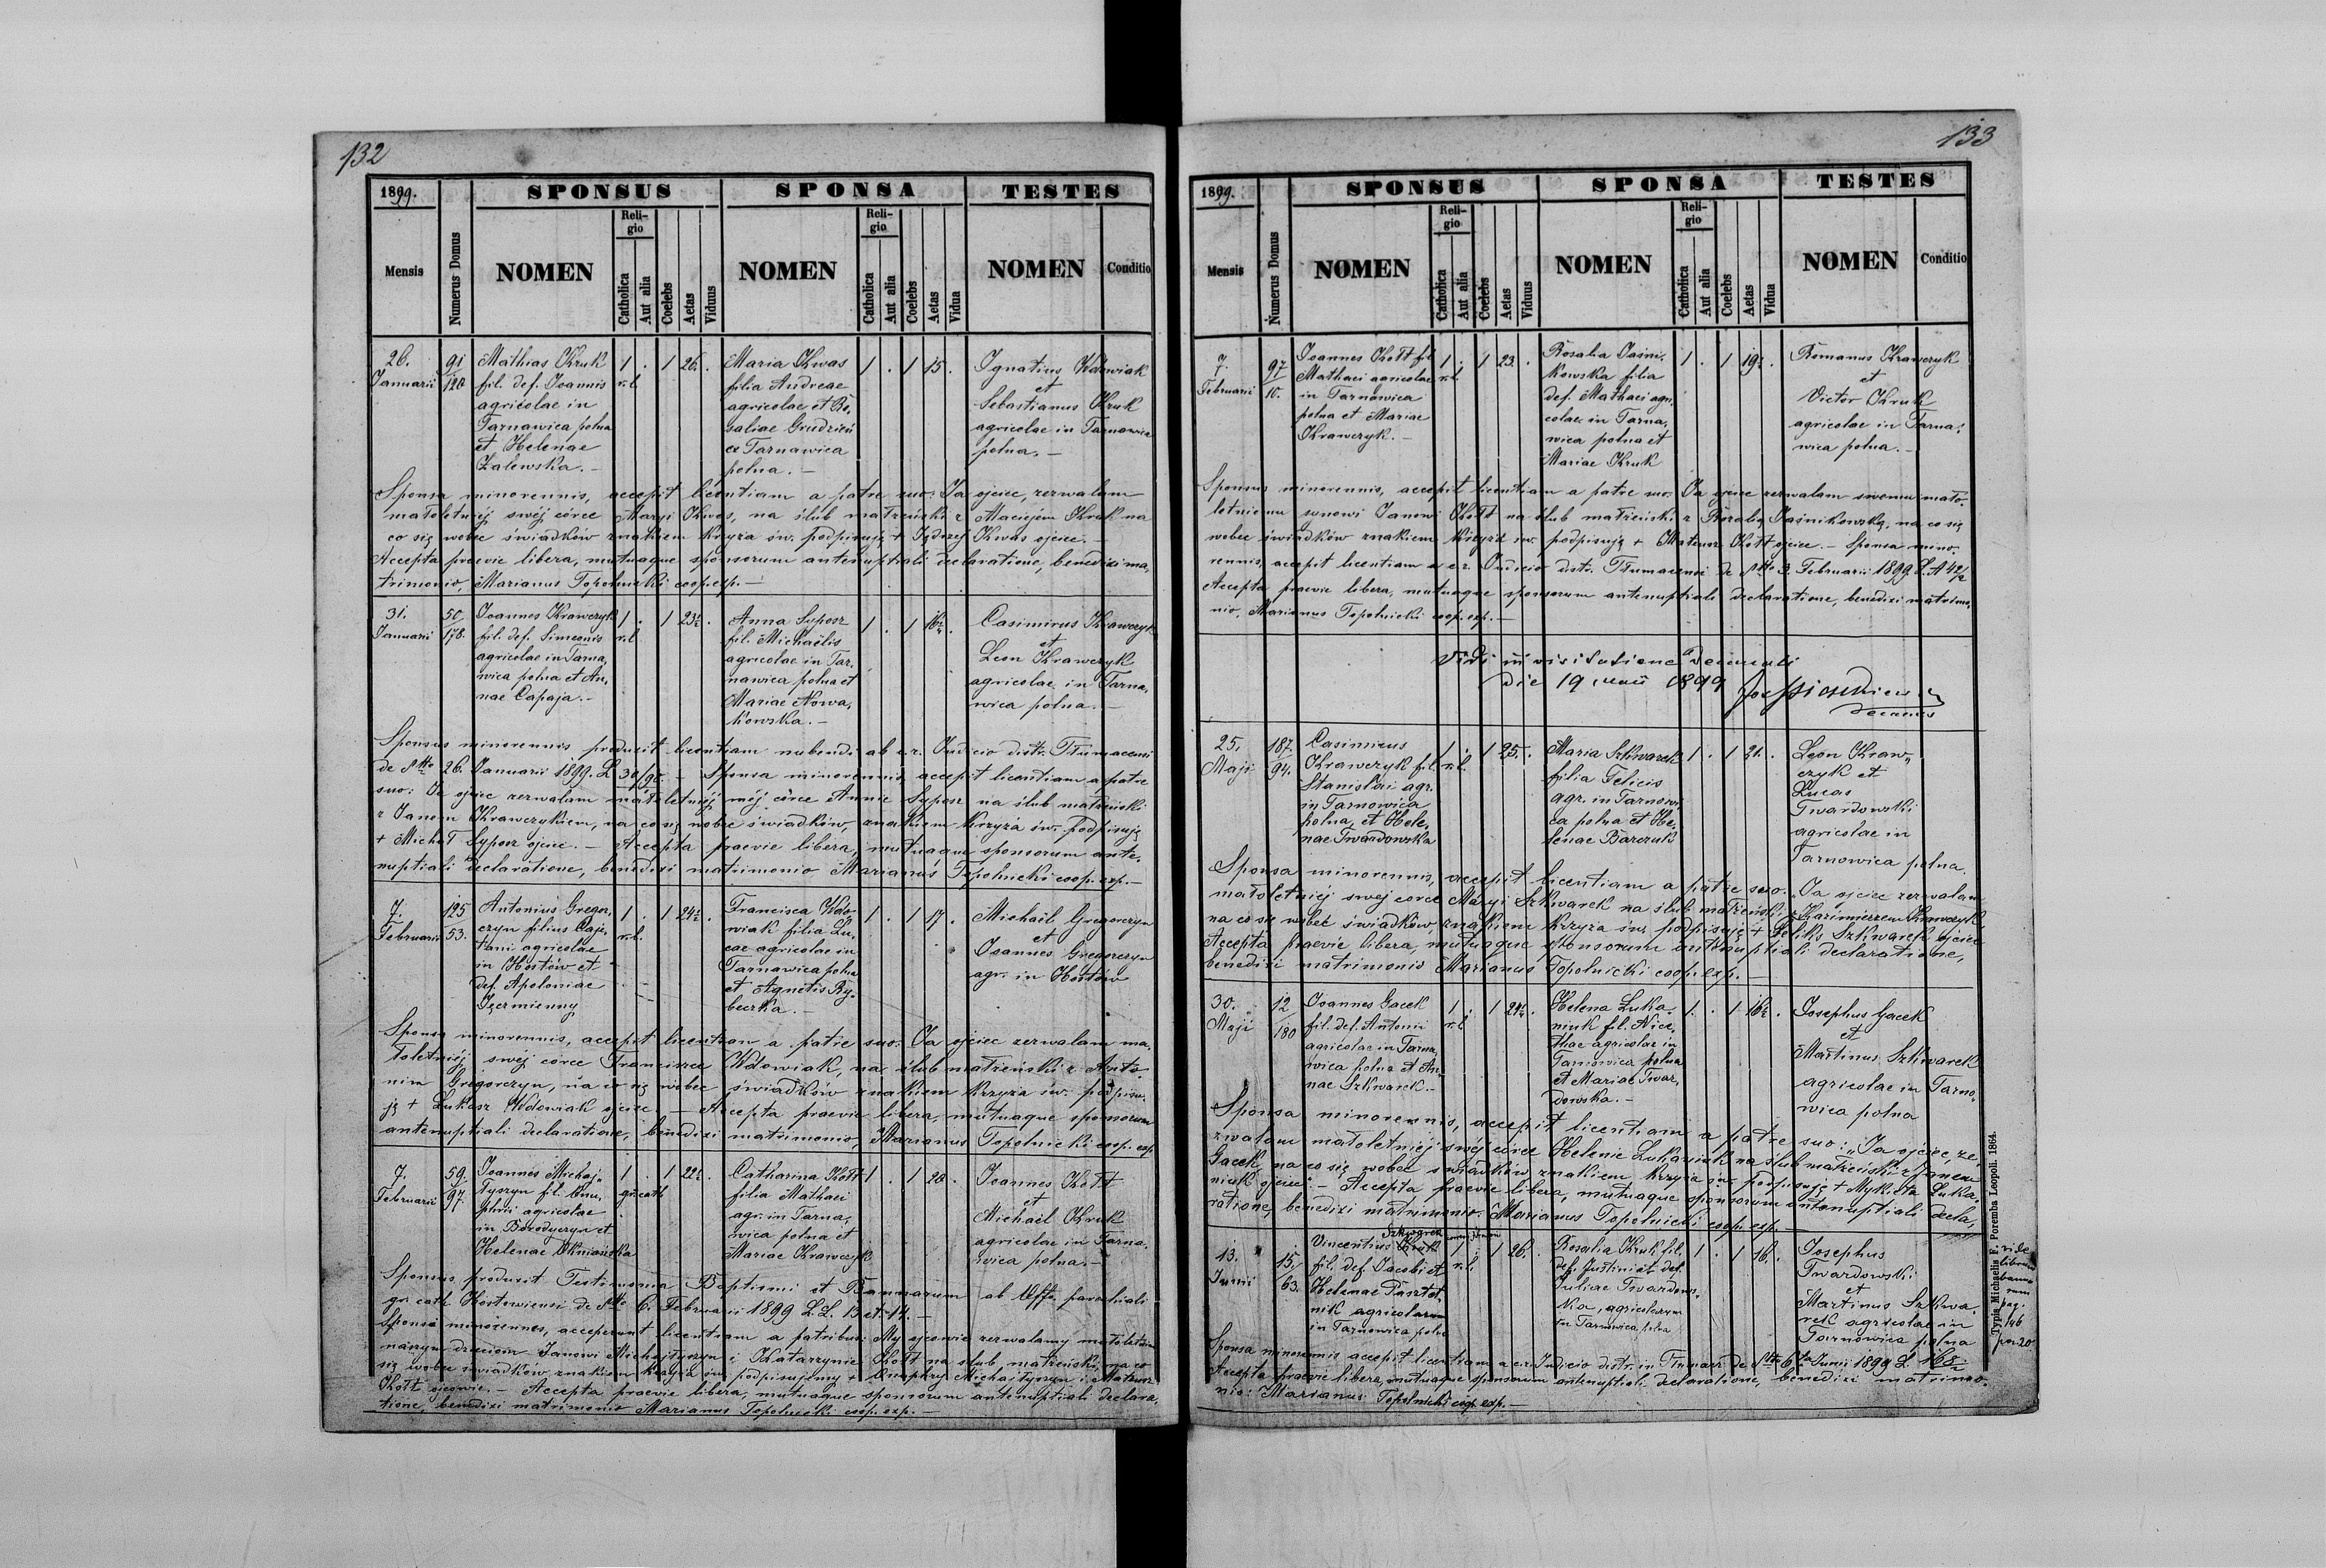 132
1899.
SPONSUS
SPONSA
TESTES
Mensis
Numerus Domus
NOMEN
Religio
Catholica
Aut alia
Coelebs
Aetas
Viduus
NOMEN
Religio
Catholica
Aut alia
Coelebs
Aetas
Vidua
NOMEN
Conditio
26.
Januarii
91
120
Mathias Kruk
fil. def. Joannis
agricolae in
Tarnawica polna
et Helenae
Zalewska. –
1 . 1 26. .
r.l.
Maria Kwas
filia Andreae
agricolae et Ro,
saliae Grudzień
ex Tarnawica
polna. –
1 . 1 15 .
Ignatius Wdowiak
et
Sebastianus Kruk
agricolae in Tarnawica
polna. –
Sponsa minorennis, accepit licentiam a patre suo: Ja ojciec, zezwalam
małoletniéj swéj córce Maryi Kwas, na ślub małżeński z Maciejem Kruk na
co się wobec świadków znakiem krzyża św. podpisuję + Jędrzej Kwas ojciec. –
Accepta praevie libera, mutuaque sponsorum antenuptiali declaratione, benedixi ma,
trimonio, Marianus Topolnicki coop. exp. –
31.
Januarii
50
178.
Joannes Krawczyk
fil. def. Simeonis
agricolae in Tarna,
wica polna et An,
nae Capaja. –
1 . 1 23½ .
r.l.
Anna Syposz
fil. Michaëlis
agricolae in Tar,
nawica polna et
Mariae Nowa,
kowska. –
1 . 1 16½ .
Casimirus Krawczyk
et
Leon Krawczyk
agricolae in Tarna,
wica polna. –
Sponsus minorennis produxit licentiam nubendi ab c.r. Judicio distr. Tłumacensi
de dtto 26. Januarii 1899. L. 30/99. – Sponsa minorennis, accepit licentiam a patre
suo: Ja ojciec zezwalam małoletniéj méj córce Annie Syposz na ślub małżeński
z Janem Krawczykiem, na co się wobec świadków, znakiem krzyża św. podpisuję
+ Michał Syposz ojciec. – Accepta praevie libera, mutuaque sponsorum ante,
nuptiali declaratione, benedixi matrimonio Marianus Topolnicki coop. exp. –
7.
Februarii
125
53.
Antonius Gregor,
czyn filius Caje,
tani agricolae
in Hostów et
def. Apoloniae
1 . 1 24½ .
r.l.
Francisca Wdo,
wiak filia Lu,
cae agricolae in
Tarnawica polna
et Agnetis Ry,
beczka. –
1 . 1 17 .
Michaël Gregorczyn
et
Joannes Gregorczyn
agr. in Hostów
Sponsa minorennis, accepit licentiam a patre suo: Ja ojciec zezwalam ma,
łoletniéj swej córce Franciszce Wdowiak, na ślub małżeński z Anto,
nim Gregorczyn, na co się wobec świadków znakiem krzyża św. podpisu,
ję + Łukasz Wdowiak ojciec. – Accepta praevie libera, mutuaque sponsorum
antenuptiali declaratione, benedixi matrimonio, Marianus Topolnicki coop. exp.
7.
Februarii
59
97.
Joannes Michaj,
łyszyn fil. Onu,
phrii agricolae
in Borodyczyn et
Helenae
1 . 1 22½ .
gr. cath
Catharina Kott
filia Mathaei
agr. in Tarna,
wica polna et
Mariae Krawczyk
1 . 1 20 .
Joannes Kott
et
Michaël Kruk
agricolae in Tarna,
wica polna. –
Sponsus produxit Testimonia Baptismi et Bannorum ab Offo. parochiali
gr. cath. Hostowiensi de dtto 6. Februarii 1899 L.L. 13 et 14. –
Sponsi minorennes, acceperunt licentiam a patribus: My ojcowie zezwalamy małoletnim
naszym dzieciom Janowi Michajłyszyn i Katarzynie Kott na ślub małżeński, na co
się wobec świadków znakiem krzyża św. podpisujemy + Onuphry Michajłyszyn i + Mateusz
Kott ojcowie. – Accepta praevie libera, mutuaque sponsorum antenuptiali declara,
tione, benedixi matrimonio Marianus Topolnicki coop. exp. –
133
1899.
SPONSUS
SPONSA
TESTES
Mensis
Numerus Domus
NOMEN
Religio
Catholica
Aut alia
Coelebs
Aetas
Viduus
NOMEN
Religio
Catholica
Aut alia
Coelebs
Aetas
Vidua
NOMEN
Conditio
7.
Februarii
97
10.
Joannes Kott fil.
Mathaei agricolae
in Tarnowica
polna et Mariae
Krawczyk. –
1 . 1 23. .
r.l.
Rosalia Jaśni,
kowska filia
def. Mathaei agri,
colae in Tarna,
wica polna et
Mariae Kruk
1 . 1 19½ .
Romanus Krawczyk
et
Victor Kruk
agricolae in Tarna,
wica polna. –
Sponsus minorennis, accepit licentiam a patre suo: Ja ojciec zezwalam swemu mało,
letniemu synowi Janowi Kott na ślub małżeński z Rozalią Jaśnikowską, na co się
wobec świadków znakiem krzyża św. podpisuję + Mateusz Kott ojciec. – Sponsa mino,
rennis, accepit licentiam a c.r. Judicio distr. Tłumacensi de dtto 3. Februarii 1899
Accepta praevie libera, mutuaque sponsorum antenuptiali declaratione, benedixi matrimo,
nio, Marianus Topolnicki coop. exp. –
Vidi in visitatione Decanali
die 19 maii 1899
Decanus
25.
Maji
187.
94.
Casimirus
Krawczyk fil.
Stanislai agr.
in Tarnowica
polna, et Hele,
nae Twardowska
1 . 1 25. .
r.l.
Maria Szkwarek
filia Felicis
agr. in Tarnowi
ca polna et He,
lenae Barczuk
1 . 1 21. .
Leon Kraw,
czyk et
Lucas
Twardowski
agricolae in
Tarnowica polna.
Sponsa minorennis, accepit licentiam a patre suo. „Ja ojciec zezwalam
małoletniéj swej córce Maryi Szkwarek na ślub małżeński z Kazimierzem Krawczyk,
na co się wobec świadków, znakiem krzyża św. podpisuję + Feliks Szkwarek ojciec.
Accepta praevie libera, mutuaque sponsorum antenuptiali declaratione,
benedixi matrimonio Marianus Topolnicki coop. exp. –
30.
Maji
12
180
Joannes Gacek
fil. def. Antonii
agricolae in Tarna,
wica polna et An,
nae Szkwarek. –
1 . 1 24½ .
r.l.
Helena Luka,
niuk fil. Nice,
thae agricolae in
Tarnowica polna
et Mariae Twar,
dowska. –
1. . 1 16½ .
Josephus Gacek
et
Martinus Szkwarek
agricolae in Tarno,
wica polna
Sponsa minorennis, accepit licentiam a patre suo: „Ja ojciec ze,
zwalam małoletniéj swéj córce Helenie Lukaniuk na ślub małżeński z Janem
Gacek, na co się wobec świadków znakiem krzyża św. podpisuję + Mykieta Luka,
niuk ojciec. – Accepta praevie libera, mutuaque sponsorum antenuptiali decla,
ratione, benedixi matrimonio. Marianus Topolnicki coop. exp. –
13.
Junii
15.
63.
Vincentius Kruk
fil. def. Jacobi et
Helenae Pasztet,
nik agricolarum
in Tarnowica polna
1 . 1 26. .
r.l.
Rosalia Kruk fil.
def. Justini et def.
Juliae Twardows,
ka, agricolarum
in Tarnowica polna
1 . 1 16. .
Josephus
Twardowski
et
Martinus Szkwa,
rek agricolae in
Tarnowica polna
Sponsa minorennis accepit licentiam a c.r. Judicio distr. in Tłumacz de dtto 6ta Junii 1899 L.
Accepta praevie libera, mutuaque sponsorum antenuptiali declaratione, benedixi matrimo,
nio: Marianus Topolnicki coop. exp. –
Typis Michaelis F. Poremba Leopoli. 1864.
vide
librum
banno
rum
pag.
146